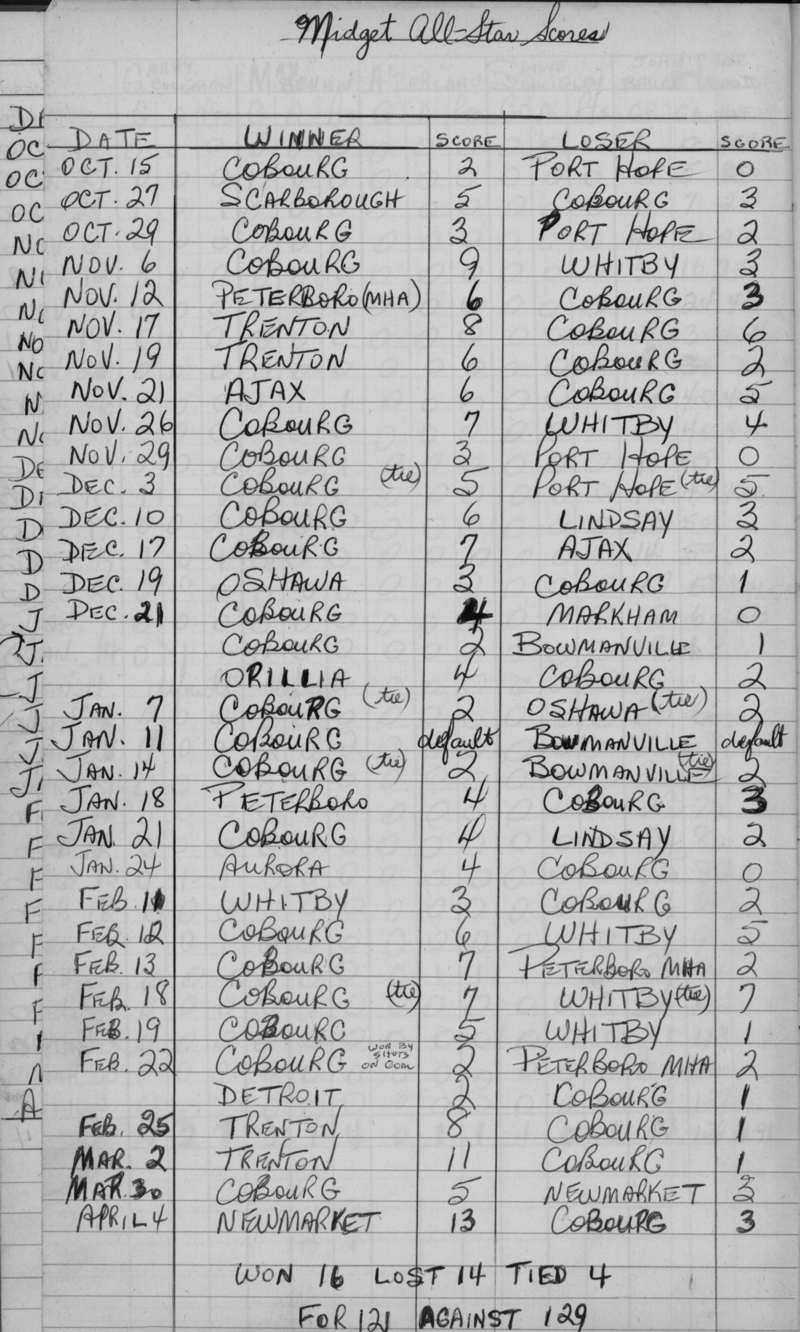 Midget All-Star Scores
DATE WINNER SCORE LOSER SCORE
OCT. 15 COBOURG 2 PORT HOPE 0
OCT. 27 SCARBOROUGH 5 COBOURG 3
OCT. 29 COBOURG 3 PORT HOPE 2
NOV. 6 COBOURG 9 WHITBY 3
NOV. 12 PETERBORO (MHA) 6 COBOURG 3
NOV. 17 TRENTON 8 COBOURG 6
NOV. 19 TRENTON 6 COBOURG 2
NOV. 21 AJAX 6 COBOURG 5
NOV. 26 COBOURG 7 WHITBY 4
NOV. 29 COBOURG 3 PORT HOPE 0
DEC. 3 COBOURG (tie) 5 PORT HOPE (tie) 5
DEC. 10 COBOURG 6 LINDSAY 3
DEC. 17 COBOURG 7 AJAX 2
DEC. 19 OSHAWA 3 COBOURG 1
DEC. 21 COBOURG 4 MARKHAM 0
COBOURG 2 BOWMANVILLE 1
ORILLIA 4 COBOURG 2
JAN. 7 COBOURG (tie) 2 OSHAWA (tie) 2
JAN. 11 COBOURG default BOWMANVILLE default
JAN. 14 COBOURG (tie) 2 BOWMANVILLE (tie) 2
JAN. 18 PETERBORO 4 COBOURG 3
JAN. 21 COBOURG 4 LINDSAY 2
JAN. 24 AURORA 4 COBOURG 0
FEB. 11 WHITBY 3 COBOURG 2
FEB. 12 COBOURG 6 WHITBY 5
FEB. 13 COBOURG 7 PETERBORO MHA 2
FEB. 18 COBOURG (tie) 7 WHITBY (tie) 7
FEB. 19 COBOURG 5 WHITBY 1
FEB. 22 COBOURG WON BY SHOTS ON GOAL 2 PETERBORO MHA 2
DETROIT 2 COBOURG 1
FEB. 25 TRENTON 8 COBOURG 1
MAR. 2 TRENTON 11 COBOURG 1
MAR. 30 COBOURG 5 NEWMARKET 3
APRIL 4 NEWMARKET 13 COBOURG 3
WON 16 LOST 14 TIED 4
FOR 121 AGAINST 129